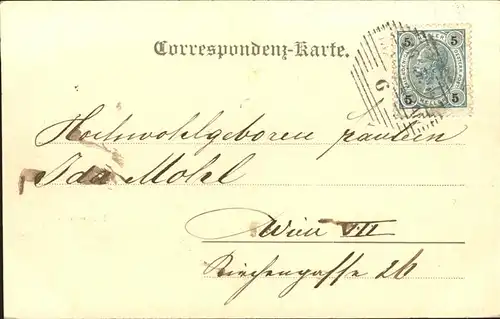 Correspondenz-Karte.
5 5
5 5
6
Hochwohlgeboren Fräulein
Ida Mohel
Wien VII
Kirchengasse 26